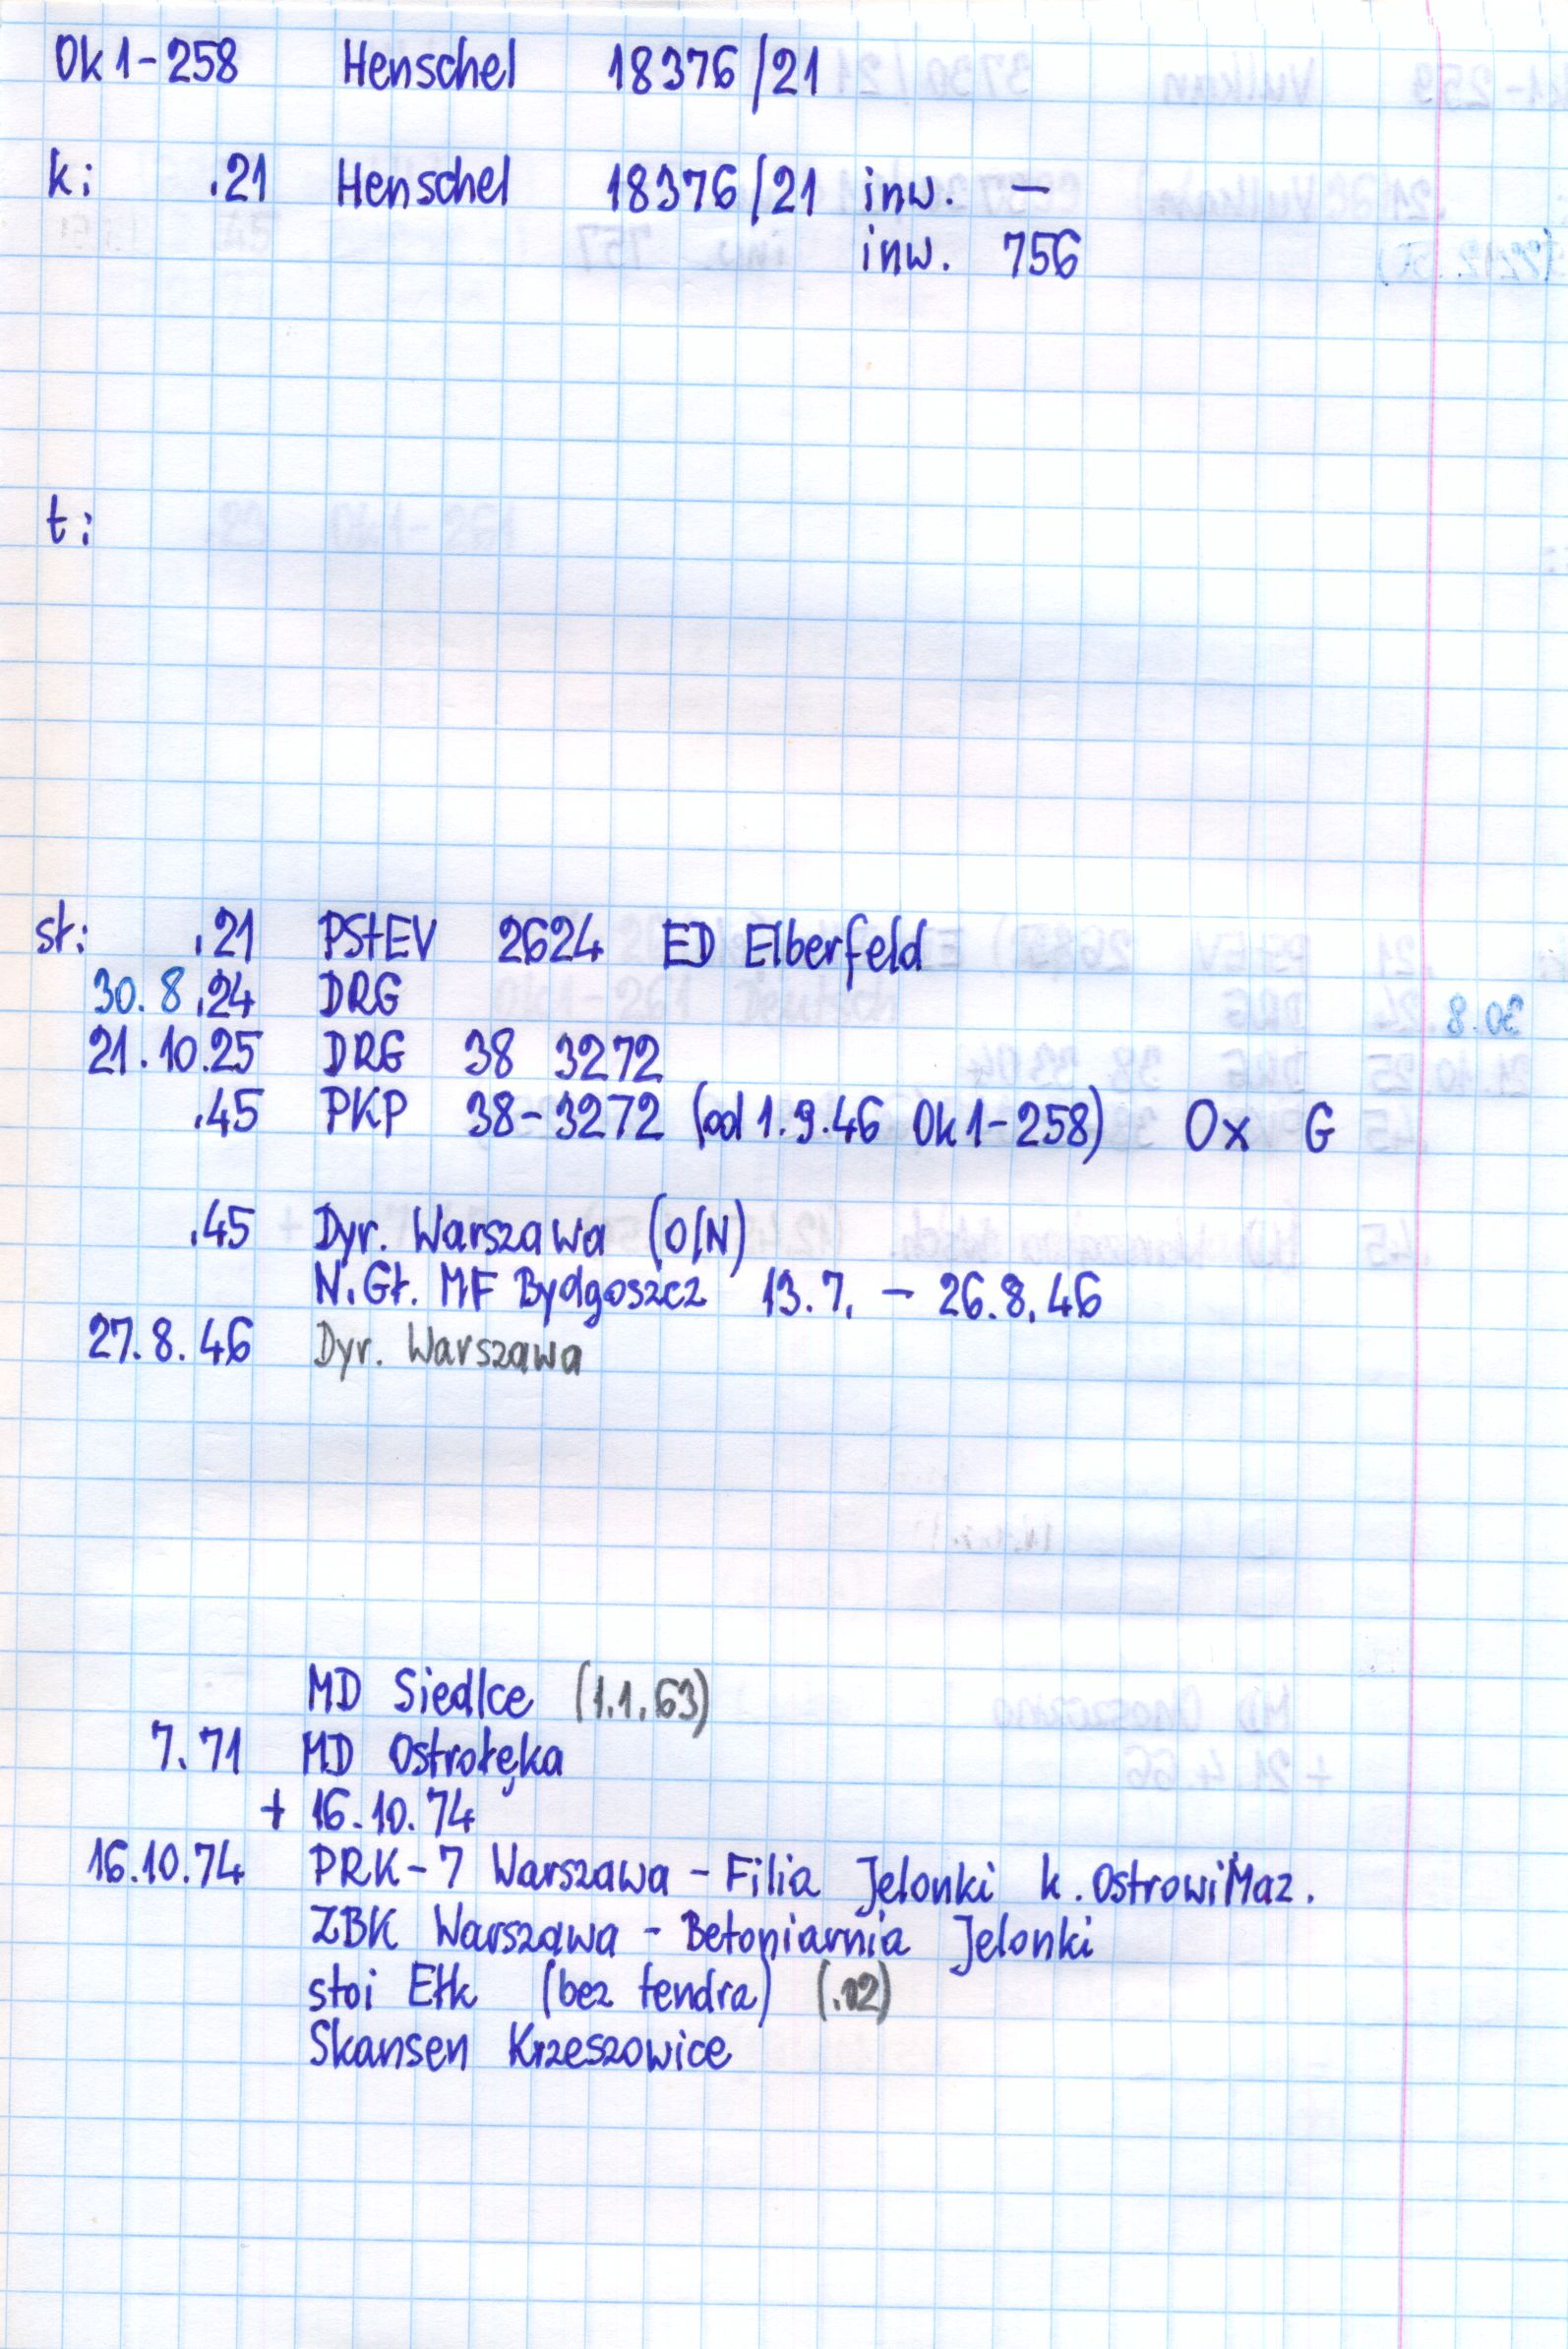 Ok1-258 Henschel 18376/21
k: .21 Henschel 18376/21 inw. —
inw. 756
t:
st: .21 PStEV 2624 ED Elberfeld
30.8.24 DRG
21.10.25 DRG 38 3272
.45 PKP 38-3272 (od 1.9.46 Ok1-258) Ox G
.45 Dyr. Warszawa (O/N)
N.Gł. MF Bydgoszcz 13.7. – 26.8.46
27.8.46 Dyr. Warszawa
MD Siedlce (1.1.63)
7.71 MD Ostrołęka
+ 16.10.74
16.10.74 PRK-7 Warszawa - Filia Jelonki k. Ostrowi Maz.
ZBK Warszawa - Betoniarnia Jelonki
stoi Ełk (bez tendra) (.12)
Skansen Krzeszowice